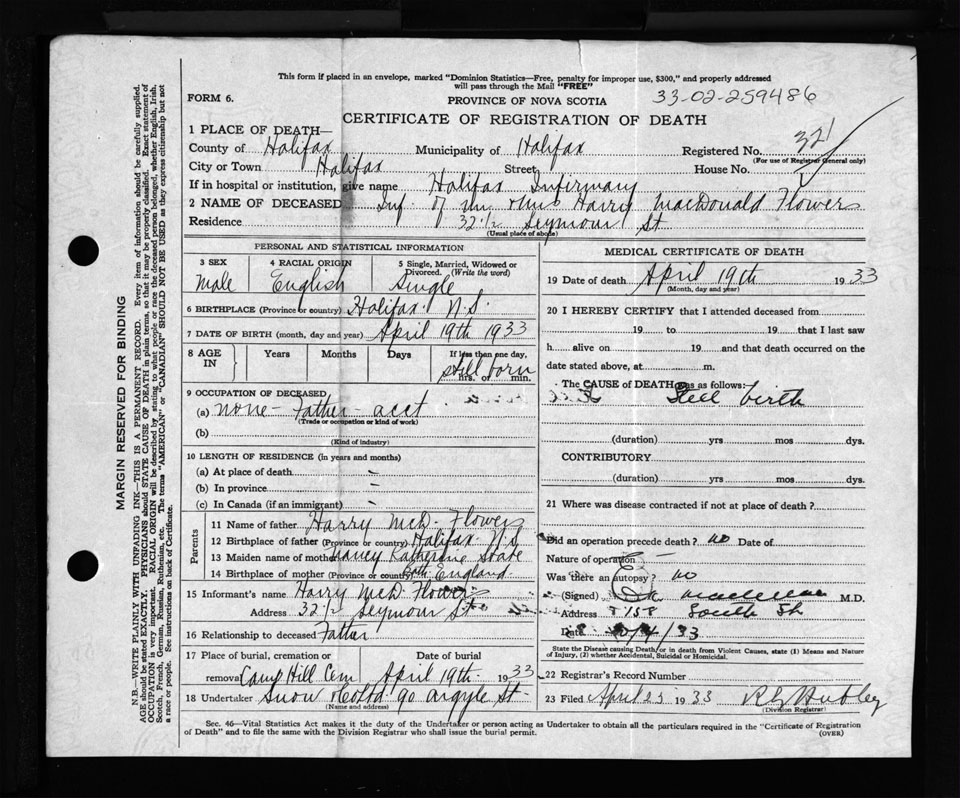 This form if placed in an envelope, marked "Dominion Statistics—Free, penalty for improper use, $300," and properly addressed
will pass through the Mail "FREE"
FORM 6.
PROVINCE OF NOVA SCOTIA
33-02-259486
CERTIFICATE OF REGISTRATION OF DEATH
1 PLACE OF DEATH—
County of Halifax Municipality of Halifax Registered No. 321
(For use of Registrar General only)
City or Town Halifax Street House No.
If in hospital or institution, give name Halifax Infirmary
2 NAME OF DECEASED Inf. of Mr Harry MacDonald Flowers
Residence 32 1/2 Seymour St
(Usual place of abode)
PERSONAL AND STATISTICAL INFORMATION
3 SEX 4 RACIAL ORIGIN 5 Single, Married, Widowed or Divorced. (Write the word)
Male English Single
6 BIRTHPLACE (Province or country) Halifax N.S.
7 DATE OF BIRTH (month, day and year) April 19th 1933
8 AGE IN Years Months Days If less than one day,
still born hrs. or min.
9 OCCUPATION OF DECEASED
(a) none - Father - acct
(Trade or occupation or kind of work)
(b)
(Kind of industry)
10 LENGTH OF RESIDENCE (in years and months)
(a) At place of death -
(b) In province -
(c) In Canada (if an immigrant) -
Parents
11 Name of father Harry McD. Flowers
12 Birthplace of father (Province or country) Halifax N.S.
13 Maiden name of mother Nancy Katherine
14 Birthplace of mother (Province or country) England
15 Informant's name Harry McD Flowers
Address 32 1/2 Seymour St
16 Relationship to deceased Father
17 Place of burial, cremation or removal Date of burial
Camp Hill Cem April 19th 1933
18 Undertaker Snow & Co Ltd 90 Argyle St
(Name and address)
MEDICAL CERTIFICATE OF DEATH
19 Date of death April 19th 1933
(Month, day and year)
20 I HEREBY CERTIFY that I attended deceased from
19 to 19 that I last saw
h alive on 19 and that death occurred on the
date stated above, at m.
The CAUSE of DEATH was as follows:—
Still birth
(duration) yrs mos dys.
CONTRIBUTORY
(duration) yrs mos dys.
21 Where was disease contracted if not at place of death?
Did an operation precede death? no Date of
Nature of operation
Was there an autopsy? no
(Signed) M.D.
Address South St
Date /4/33
State the Disease causing Death, or in death from Violent Causes, state (1) Means and Nature
of Injury, (2) whether Accidental, Suicidal or Homicidal.
22 Registrar's Record Number
23 Filed April 25 1933
(Division Registrar)
Sec. 46—Vital Statistics Act makes it the duty of the Undertaker or person acting as Undertaker to obtain all the particulars required in the "Certificate of Registration
of Death" and to file the same with the Division Registrar who shall issue the burial permit.
(OVER)
MARGIN RESERVED FOR BINDING
N.B.—WRITE PLAINLY WITH UNFADING INK—THIS IS A PERMANENT RECORD. Every item of information should be carefully supplied.
AGE should be stated EXACTLY. PHYSICIANS should STATE CAUSE OF DEATH in plain terms, so that it may be properly classified. Exact statement of
OCCUPATION is very important. RACIAL ORIGIN will be described by stating to what people or race the deceased person belonged, whether English, Irish,
Scotch, French, German, Russian, Ruthenian, etc. The terms "AMERICAN" or "CANADIAN" SHOULD NOT BE USED as they express citizenship but not
a race or people. See instructions on back of Certificate.